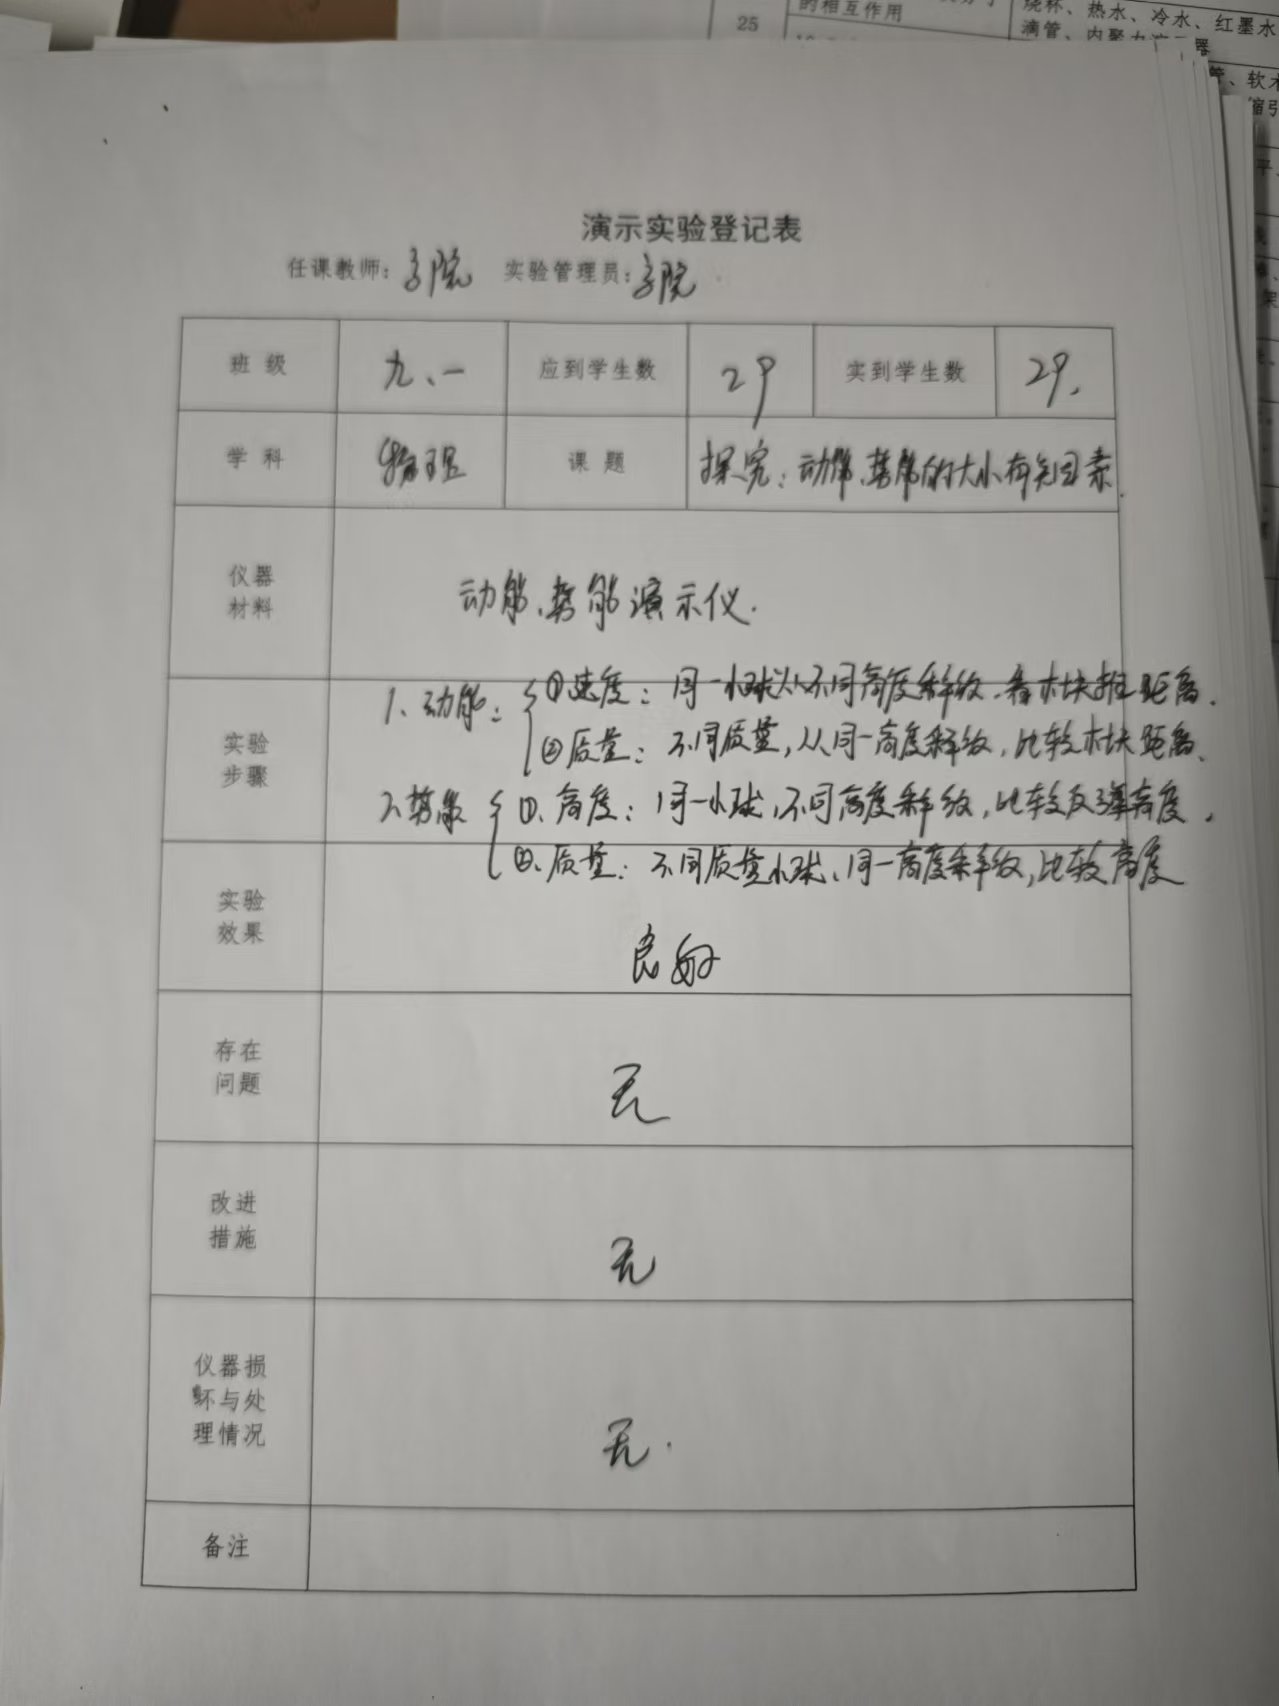 25
的相互作用
烧杯、热水、冷水、红墨水
滴管、内聚力演示器
管、软木
缩引
演示实验登记表
任课教师: 实验管理员:
班级 九、一 应到学生数 29 实到学生数 29.
学科 物理 课题 探究:动能、势能的大小有关因素.
仪器
材料
动能、势能演示仪.
实验
步骤
1、动能: ①速度: 同一小球从不同高度释放.看木块推距离.
②质量: 不同质量,从同一高度释放,比较木块距离、
2、势能 ①、高度: 同一小球,不同高度释放,比较反弹高度.
②、质量: 不同质量小球、同一高度释放,比较高度
实验
效果
良好
存在
问题
无
改进
措施
无
仪器损
坏与处
理情况
无.
备注